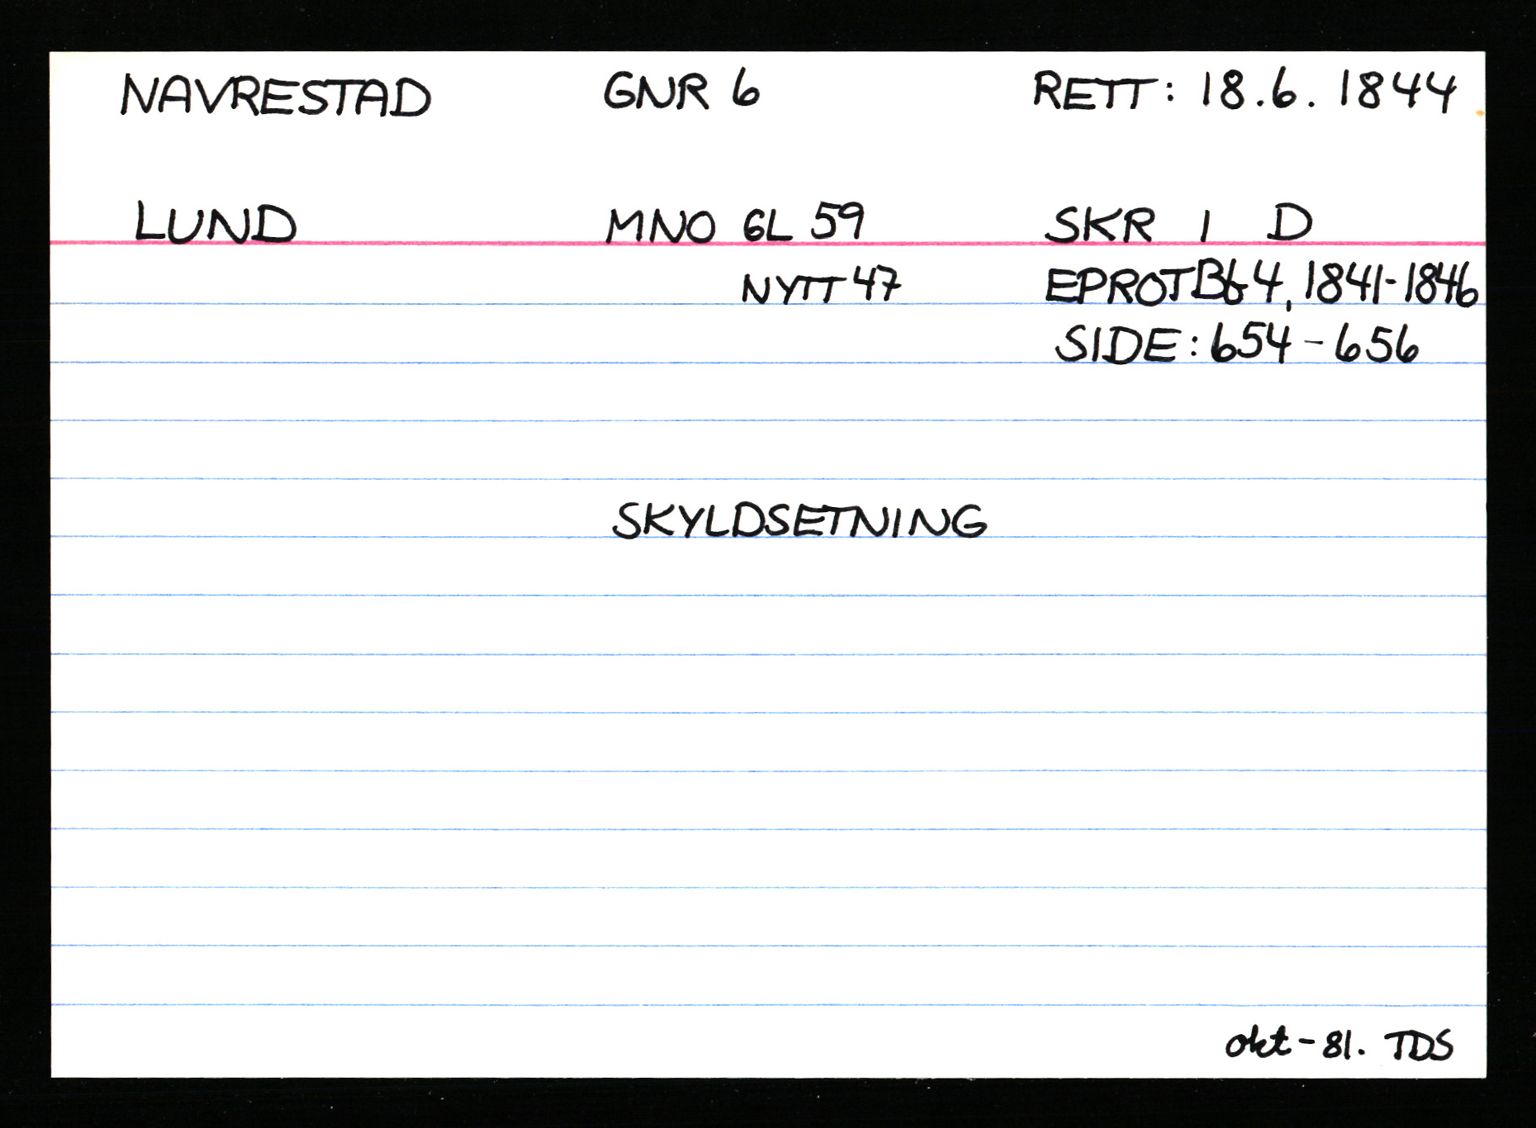 NAVRESTAD GNR 6 RETT: 18.6. 1844
LUND MNO GL 59 SKR 1 D
NYTT 47 EPROTB64, 1841-1846
SIDE: 654-656
SKYLDSETNING
okt-81. TDS